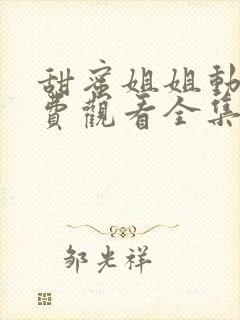 甜蜜姐姐動
費觀看全集
邹光祥